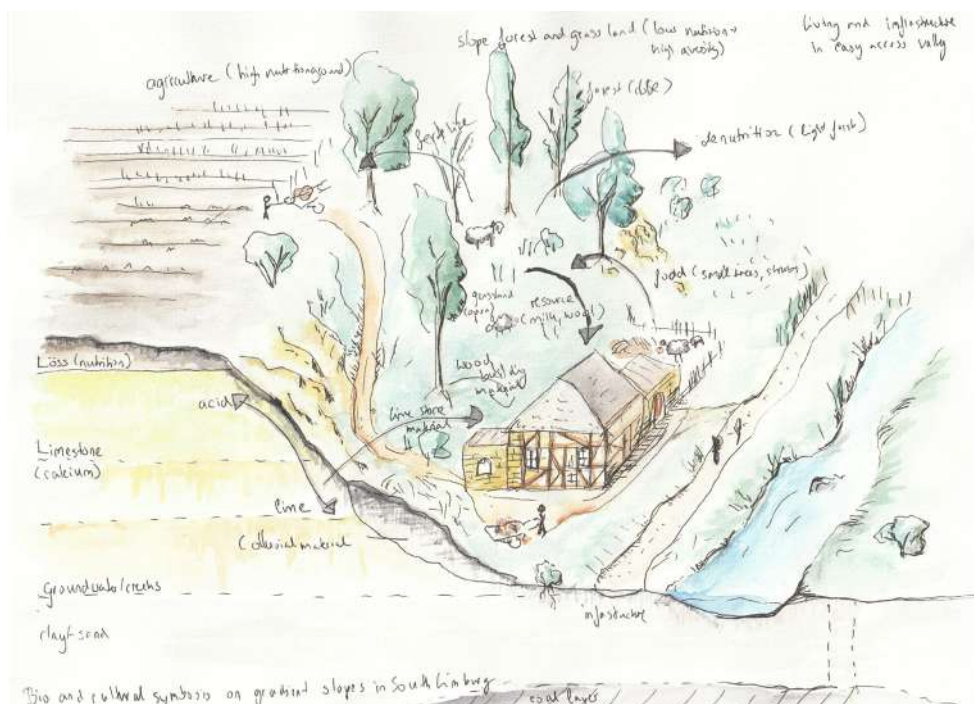 slope forest and grass land (low nutrition→
high diversity)
Living and infrastructure
in easy access valley
agriculture (high nutrition ground)
forest (
denutrition (light forest)
food (small trees, shrubs)
grassland
(open)
resource
(milk, wool)
Löss (nutrition)
wood
building
material
acid
lime stone
material
Limestone
(calcium)
lime
Colluvial material
Groundwater/creeks
infrastructure
clay + sand
Bio and cultural symbiosis on gradient slopes in South Limburg
coal layer